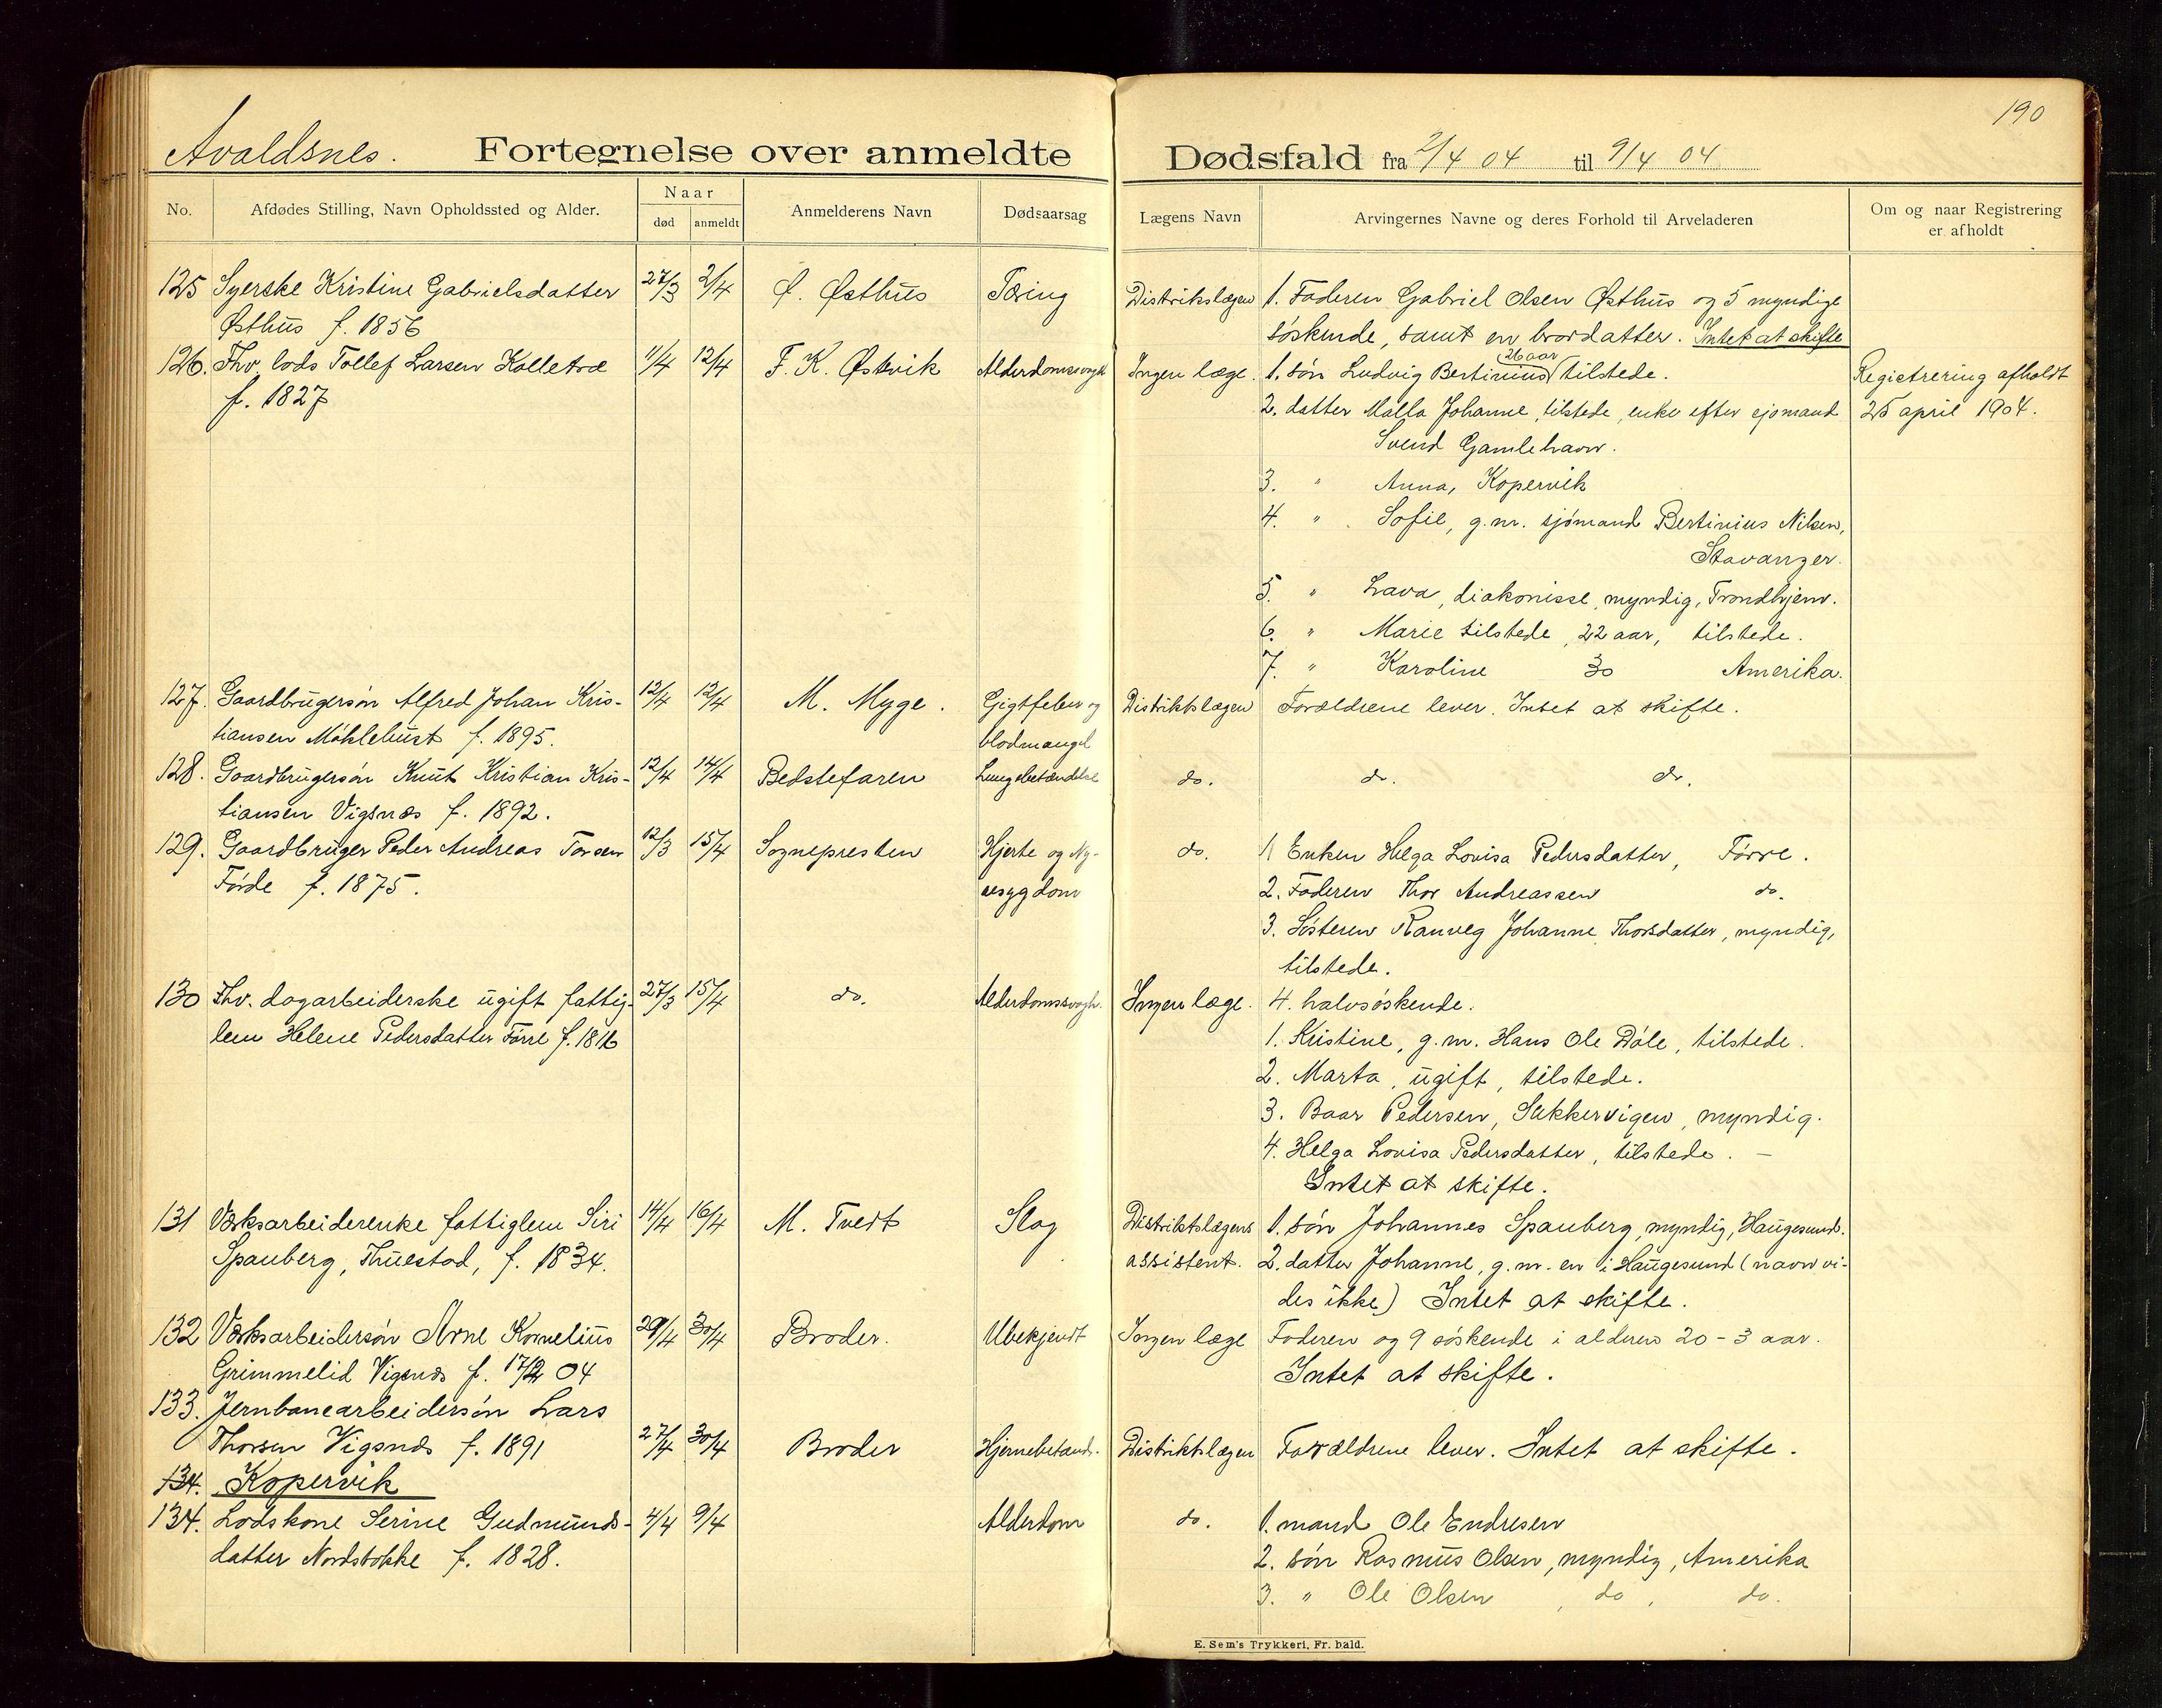 190
Avaldsnes. Fortegnelse over anmeldte Dødsfald fra 2/4 04 til 9/4 04
No. Afdødes Stilling, Navn Opholdssted og Alder. Naar død anmeldt Anmelderens Navn Dødsaarsag Lægens Navn Arvingernes Navne og deres Forhold til Arveladeren Om og naar Registrering er afholdt
125 Syerske Kristine Gabrielsdatter 27/3 2/4 Ø. Østhus Tæring Distrikslægen 1. Faderen Gabriel Olsen Østhus og 5 myndige
Østhus f. 1856 søskende, samt en brordatter. Intet at skifte
126. Fhv. lods Tollef Larsen Kolletvæ 11/4 12/4 F. K. Østvik Alderdomssvagh Ingen læge. 1. søn Ludvig Bertinius 26 aar tilstede. Registrering afholdt
f. 1827 2. datter Malla Johanne, tilstede, enke efter sjømand 25 april 1904.
Svend Gamlehavn.
3. " Anna, Kopervik
4. " Sofie, g.m. sjómand Bertinius Nilsen,
Stavanger.
5. " Lava, diakonisse, myndig, Trondhjem.
6. " Marie tilstede, 22 aar, tilstede.
7. " Karoline 30 Amerika.
127. Gaardbrugersøn Alfred Johan Kris- 12/4 12/4 M. Myge. Gigtfeber og Distriktslægen Forældrene lever. Intet at skifte.
tiansen Møklebust f. 1895. blodmangel
128. Gaardbrugersøn Knut Kristian Kris- 12/4 14/4 Bedstefaren Lungebetændelse do. do. do.
tiansen Vigsnæs f. 1892.
129. Gaardbruger Peder Andreas Torsen 12/3 15/4 Sognepresten Hjerte og Ny- do. 1 Enken Helga Lovisa Pedersdatter, Førre.
Førde f. 1875. resygdom 2. Faderen Thor Andreassen do.
3. Søsteren Ranveg Johanne Thorsdatter, myndig,
tilstede.
130 Fhv. dagarbeiderske ugift fattig- 27/3 15/4 do. Alderdomssvagh. Ingen læge. 4. halvsøskende.
lem Helene Pedersdatter Førre f. 1816 1. Kristine, g.m. Hans Ole Døle, tilstede.
2. Marta, ugift, tilstede.
3. Baar Pedersen, Sækkervigen, myndig.
4. Helga Lovisa Pedersdatter, tilstede. –
Intet at skifte.
131 Værksarbeiderenke fattiglem Siri 14/4 16/4 M. Tvedt Slag Distriktslægens 1. søn Johannes Spanberg, myndig, Haugesund.
Spanberg, Thuestad, f. 1834. assistent. 2. datter Johanne, g.m. en i Haugesund (navn vi-
des ikke) Intet at skifte.
132 Værksarbeidersøn Arne Kornelius 29/4 30/4 Broder. Ubekjendt Ingen læge Faderen og 9 søskende i alderen 20 - 3 aar.
Grimmelid Vigsnæs f. 17/2 04 Intet at skifte.
133. Jernbanearbeidersøn Lars
Thorsen Vigsnæs f. 1891 27/4 30/4 Broder Hjernebetænd. Distriktslægen Forældrene lever. Intet at skifte.
134. Kopervik
134. Lodskone Serine Gudmunds- 4/4 9/4 Alderdom do. 1. mand Ole Endresen
datter Nordstokke f. 1828. 2. søn Rasmus Olsen, myndig, Amerika
3. " Ole Olsen, do, do.
E. Sem's Trykkeri, Fr. hald.